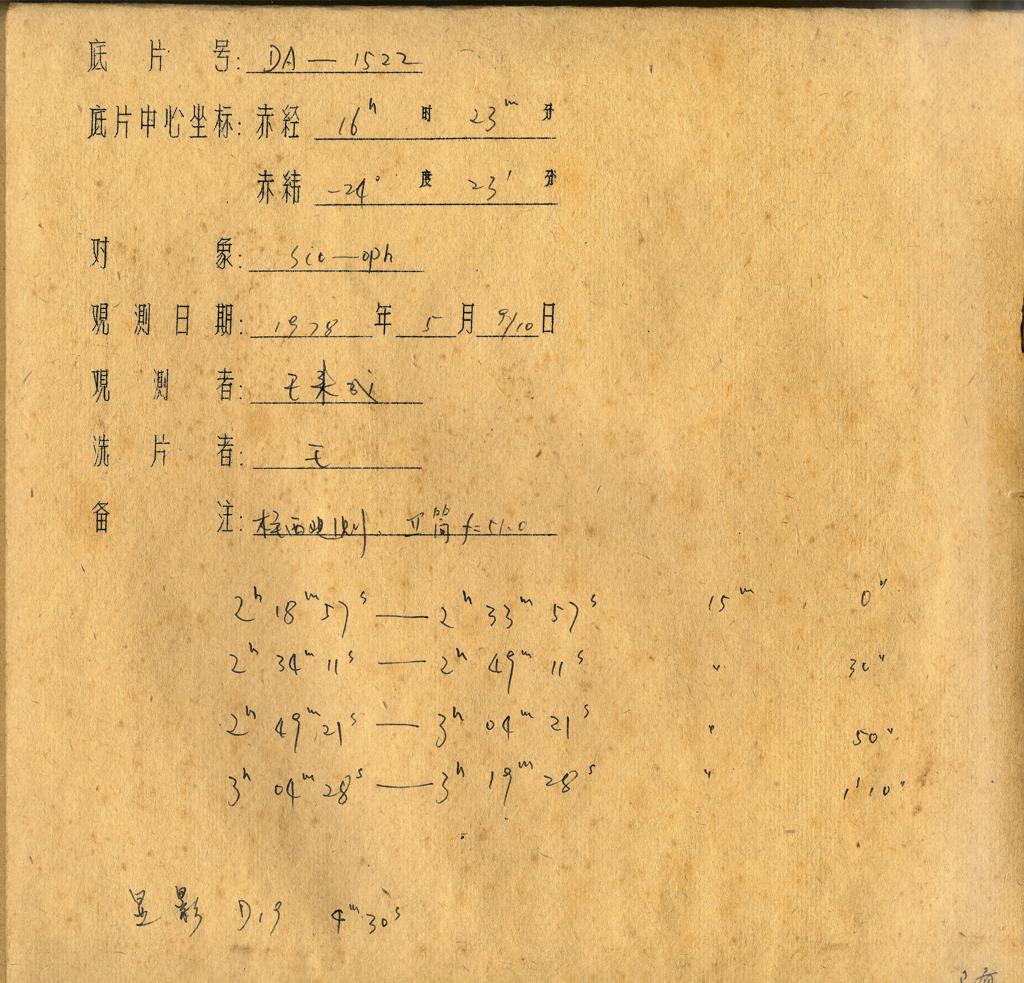 底片号: DA — 1522
底片中心坐标: 赤经 16ʰ 时 23ᵐ 分
赤纬 -24° 度 23′ 分
对象: Sco—oph
观测日期: 1978 年 5 月 9/10 日
观测者: 王
洗片者: 王
备注: 西观测、 筒 f=51.0
2ʰ 18ᵐ 57ˢ — 2ʰ 33ᵐ 57ˢ 15ᵐ 0″
2ʰ 34ᵐ 11ˢ — 2ʰ 49ᵐ 11ˢ " 30″
2ʰ 49ᵐ 21ˢ — 3ʰ 04ᵐ 21ˢ " 50″
3ʰ 04ᵐ 28ˢ — 3ʰ 19ᵐ 28ˢ " 1′10″
显影 D19 4ᵐ30ˢ